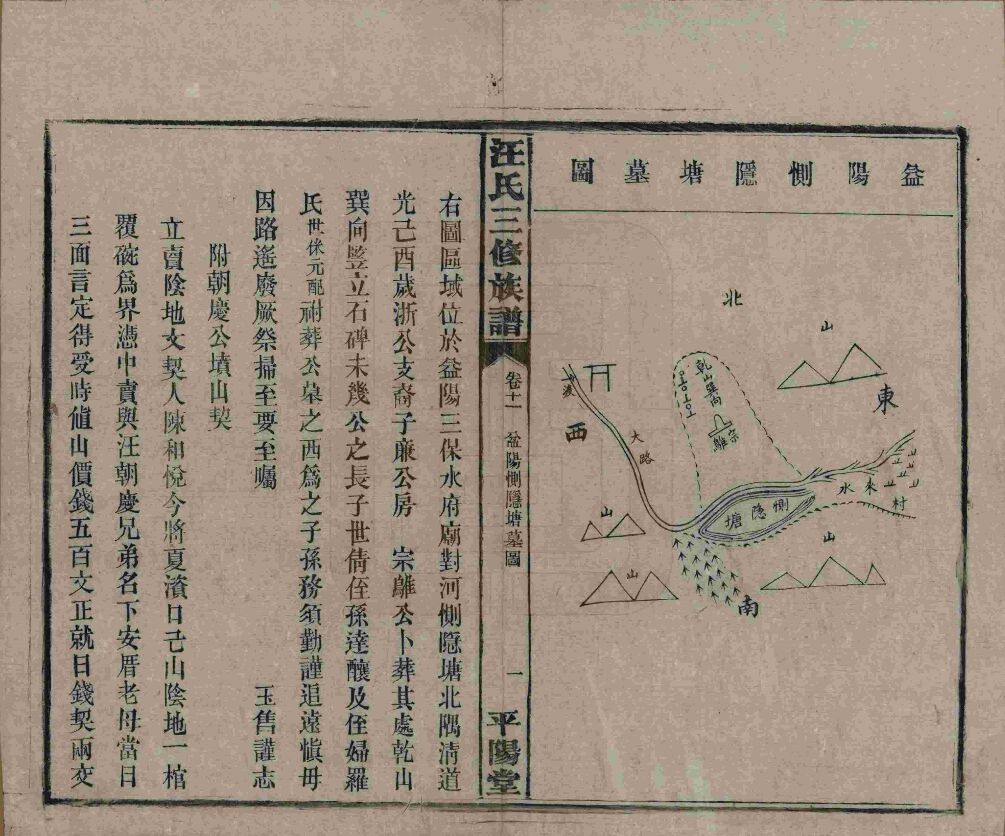 益陽惻隱塘墓圖
北
山
東
乾山巽向
宗離
西
大路
水來
村
惻隱塘
山
山
山
南
汪氏三修族譜
卷十一
益陽惻隱塘墓圖
一
平陽堂
右圖區域位於益陽三保水府廟對河惻隱塘北隅清道
光己酉歲浙公支裔子廉公房 宗離公卜葬其處乾山
巽向豎立石碑未幾公之長子世倩侄孫達釀及侄婦羅
氏世俅元配祔葬公墓之西為之子孫務須勤謹追遠愼毋
因路遙廢厥祭掃至要至囑 玉舊謹志
附朝慶公墳山契
立賣陰地文契人陳和悅今將夏濱日己山陰地一棺
覆碗爲界憑中賣與汪朝慶兄弟名下安厝老母當日
三面言定得受時值山價錢五百文正就日錢契兩交